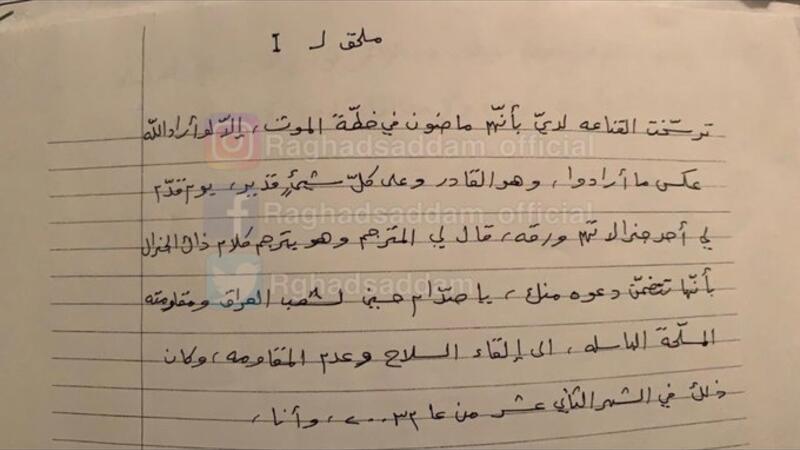 ملحق لـ I
ترسّخت القناعه لديّ بأنّهم ماضون في خطّة الموت، إلاّ لو أراد الله
عكس ما أرادوا، وهو القادر وعلى كلّ شيئٍ قدير، يوم قدّم
لي أحد جنرالاتهم ورقه، قال لي المترجم وهو يترجم كلام ذاك الجنرال
بأنّها تتضمّن دعوه منك، يا صدّام حسين لشعب العراق ومقاومته
المسلّحة الباسله، الى إلقاء السلاح وعدم المقاومه، وكان
ذلك في الشهر الثاني عشر من عام ٢٠٠٣، وأنا،
Raghadsaddam_official
Raghadsaddam_official
Rghadsaddam